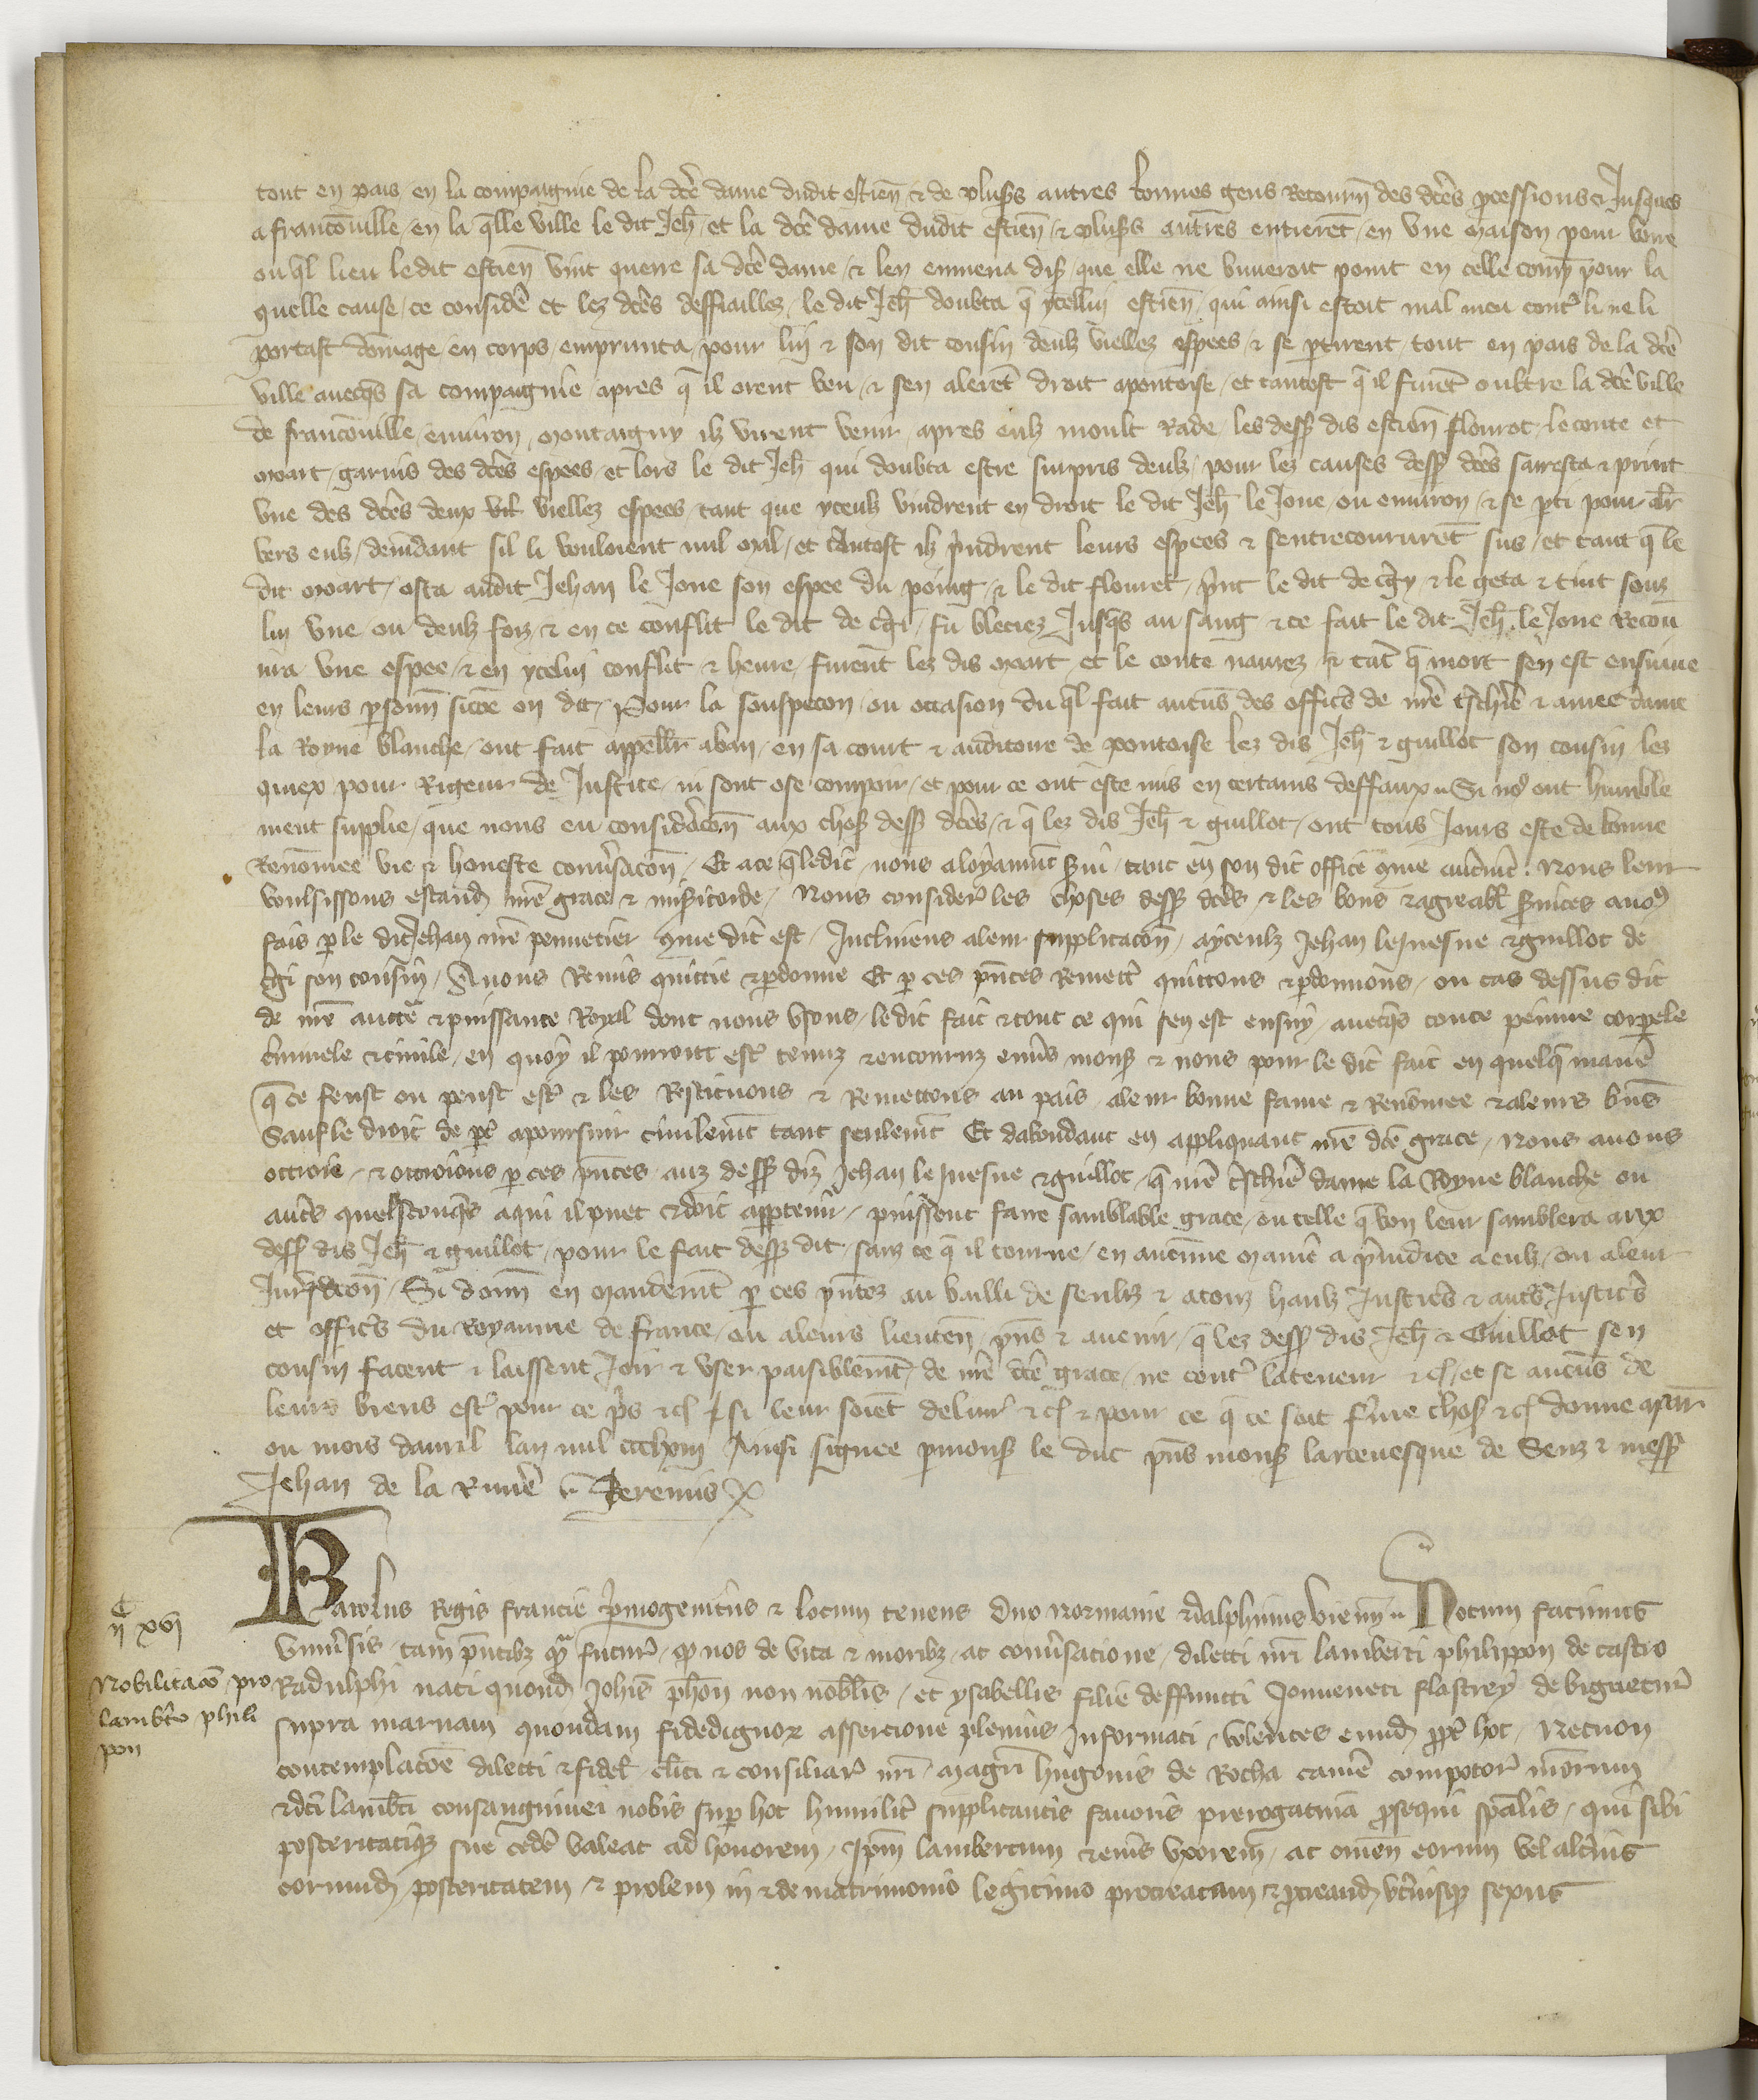 tout en pais en la compaignie de la dcē dame dudit estienn̄ & de plusrs autres bonnes gens retournn̄ des dcēs ꝓcessions Jusques
a francōuille / en la qlle ville le dit Jeh̄ / et la dcē dame dudit estienn̄ / & plusrs autres entrerēt / en vne maison pour boire
ou ql lieu ledit estienn̄ vint querre sa dcē dame / & len enmena dist que elle ne buueroit point en celle comp̄ pour la
quelle cause / ce considē et lez dcēs deffiaillez / le dit Jeh̄ doubta q̄ ycellui estienn̄ qui ainsi estoit mal meu contr li ne li
portast dōmage en corps / emprunta / pour lui & son dit cousin deux viellez espees / & se ꝑtirent / tout en pais de la dcē
ville auecqs sa compaignie / apres q̄ il orent beu / & sen alerēt droit apontoise / et tantost q̄ il furēt oultre la dcē ville
de francōuille / enuiron montaigny ilz virent venir apres eulz moult rade / les dess dis estienn̄ flourot / le conte et
mart / garnis des dcēs espees / et lors le dit Jeh̄ qui doubta estre surpris deulz / pour lez causes dess dcēs sarresta & print
vne des dcēs deux viellez espees / tant que yceulz vindrent en droit le dit Jeh̄ le Jone / ou enuiron / & se ꝑti pour aler
vers eulz / demādant sil li vouloient nul mal / et tantost ilz p̄ndrent leurs espees & sentrecoururēt sus / et tant q̄ le
dit mart / osta audit Jehan le Jone son espee du poing / & le dit flouret / pr̄nt le dit de cgy / & le geta & tint souz
lui vne / ou deulz foiz / & en ce conflit le dit de cgi / fu bleciez Jusqs au sang & ce fait le dit Jeh̄ le Jone recou
ura vne espee / & en ycelui conflit & heure / furent lez dis mart / et le conte naurez / & tāt q̄ mort sen est ensuiue
en leurs ꝑsonn̄ sicōe on dit / Pour la souspecon / ou occasion du ql fait aucūs des officrs de nrē tschiē & amee dame
la Royne blanche / ont fait appeller aban / en sa court & auditoire de pontoise lez dis Jeh̄ & guillot son cousin / les
quiex / pour rigeur de Justice / ni sont ose comparoir / et pour ce ont este mis en certains deffaux Si no9 ont humble
ment supplie / que nous eu consideracōn aux chosz dess dcēs / & q̄ lez dis Jeh̄ & guillot / ont tous Jours este de bonne
renōmee vie & honeste conuersacōn / Et ace q̄ ledit / nous a loyaumēt sui / tant en son dit office cōme autremēt / Nous leur
voulsissons estandre nrē grace & misicorde / Nous considerās les choses dess dcēs / & les bons & agreabl seruices a no9
fais ꝑ le dit Jehan nrē pennetier cōme dit est / Inclinens aleur supplicacōn / ayceulz Jehan le Juesne & guillot de
cgi son cousin / Auons remis quittie & ꝑdonne Et ꝑ ces pntes remettr̄ quittons & ꝑdonnons / ou cas dessus dit
de nrē auctē & puissance Royal dont nous vsons / le dit fait & tout ce qui sen est ensuy / auecqs toute peinne corporele
criminele & ciuile / en quoy il pourroiēt estr̄ tenuz & encouruz enurs monsr & nous pour le dit fait en quelq̄ manē
q̄ ce feust ou peust estr̄ & les restituons & remettons au pais aleur bonne fame & renōmee & aleurs biēs
Sauf le droit de ꝑte apoursuir ciuilemēt tant seulemēt Et dabondant en appliquant nrē dcē grace / Nous auons
ottroie / & ottroions ꝑ ces pntes auz dess diz Jehan le Juesne & guillot / q̄ nrē tschiē dame la Royne blanche ou
autrēs quelsconqs aqui il puet & doit apꝑtenir / puissent faire samblable grace / ou telle q̄ bon leur samblera aux
dess dis Jeh̄ & guillot / pour le fait dess dit / sanz ce q̄ il tourne / en aucunne manē a p̄iudice a eulz / ou aleur
Juridicōn / Si donn̄ en mandemēt ꝑ ces pntez au bailli de senliz & atouz haulz Justicrs & autrs Justicrs
et officrs du Royaume de france / ou aleurs lieuten̄ / pn̄s & auenir / q̄ lez dess dis Jeh̄ & Guillot sen
cousin facent & laissent Joir & vser paisiblemēt / de nrē dcē grace / ne contr̄ lateneur &c / et se aucūs de
leurs biens estr̄ pour ce pris &c / si leur soiēt deliur̄ &c & pour ce q̄ ce soit ferme chosz &c donne a paris
ou mois dauril lan mil ccclviij Ainsi signee ꝑ monsr le duc pn̄s monsr larceuesque de Senz & messr
Jehan de la Riuiē Jeremis
Karolus Regis francie p̄mogenitus & locum tenens Dux Normanie & dalphinus vienn̄ Notum facimus
vniuersis / tam pn̄tibz qua futur̄ / qd nos de vita & moribz / ac conuersatione / dilecti nrī lamberti philippon de castro
Radulphi nati quond Johis ph̄on non nobilis / et ysabellis filie deffuncti Jouueneti flastrey de biguetur
supra marnam quondam fidedignoꝝ assercione plenius Informati / volentes eund ppt hoc / Necnon
contemplacōe dilecti & fidel clici & consiliar̄ nrī magrī hugonis de Rocha camē compotor̄ nrorum
& dci lambti consanguinei nobis sup hoc humilit supplicantis fauoris prerogatiua ꝓsequi spālis / qui sibi
posteritatiqz sue cedē valeat ad honorem / Ipm lambertum & eius vxorem / ac omēn eorum vel alterius
eorumd posteritatem / & prolem in & de matrimonio legitimo procreatam & ꝓcreand vtriusqz sexus
ij xvj
Nobilitacō pro
lambto phili
pon